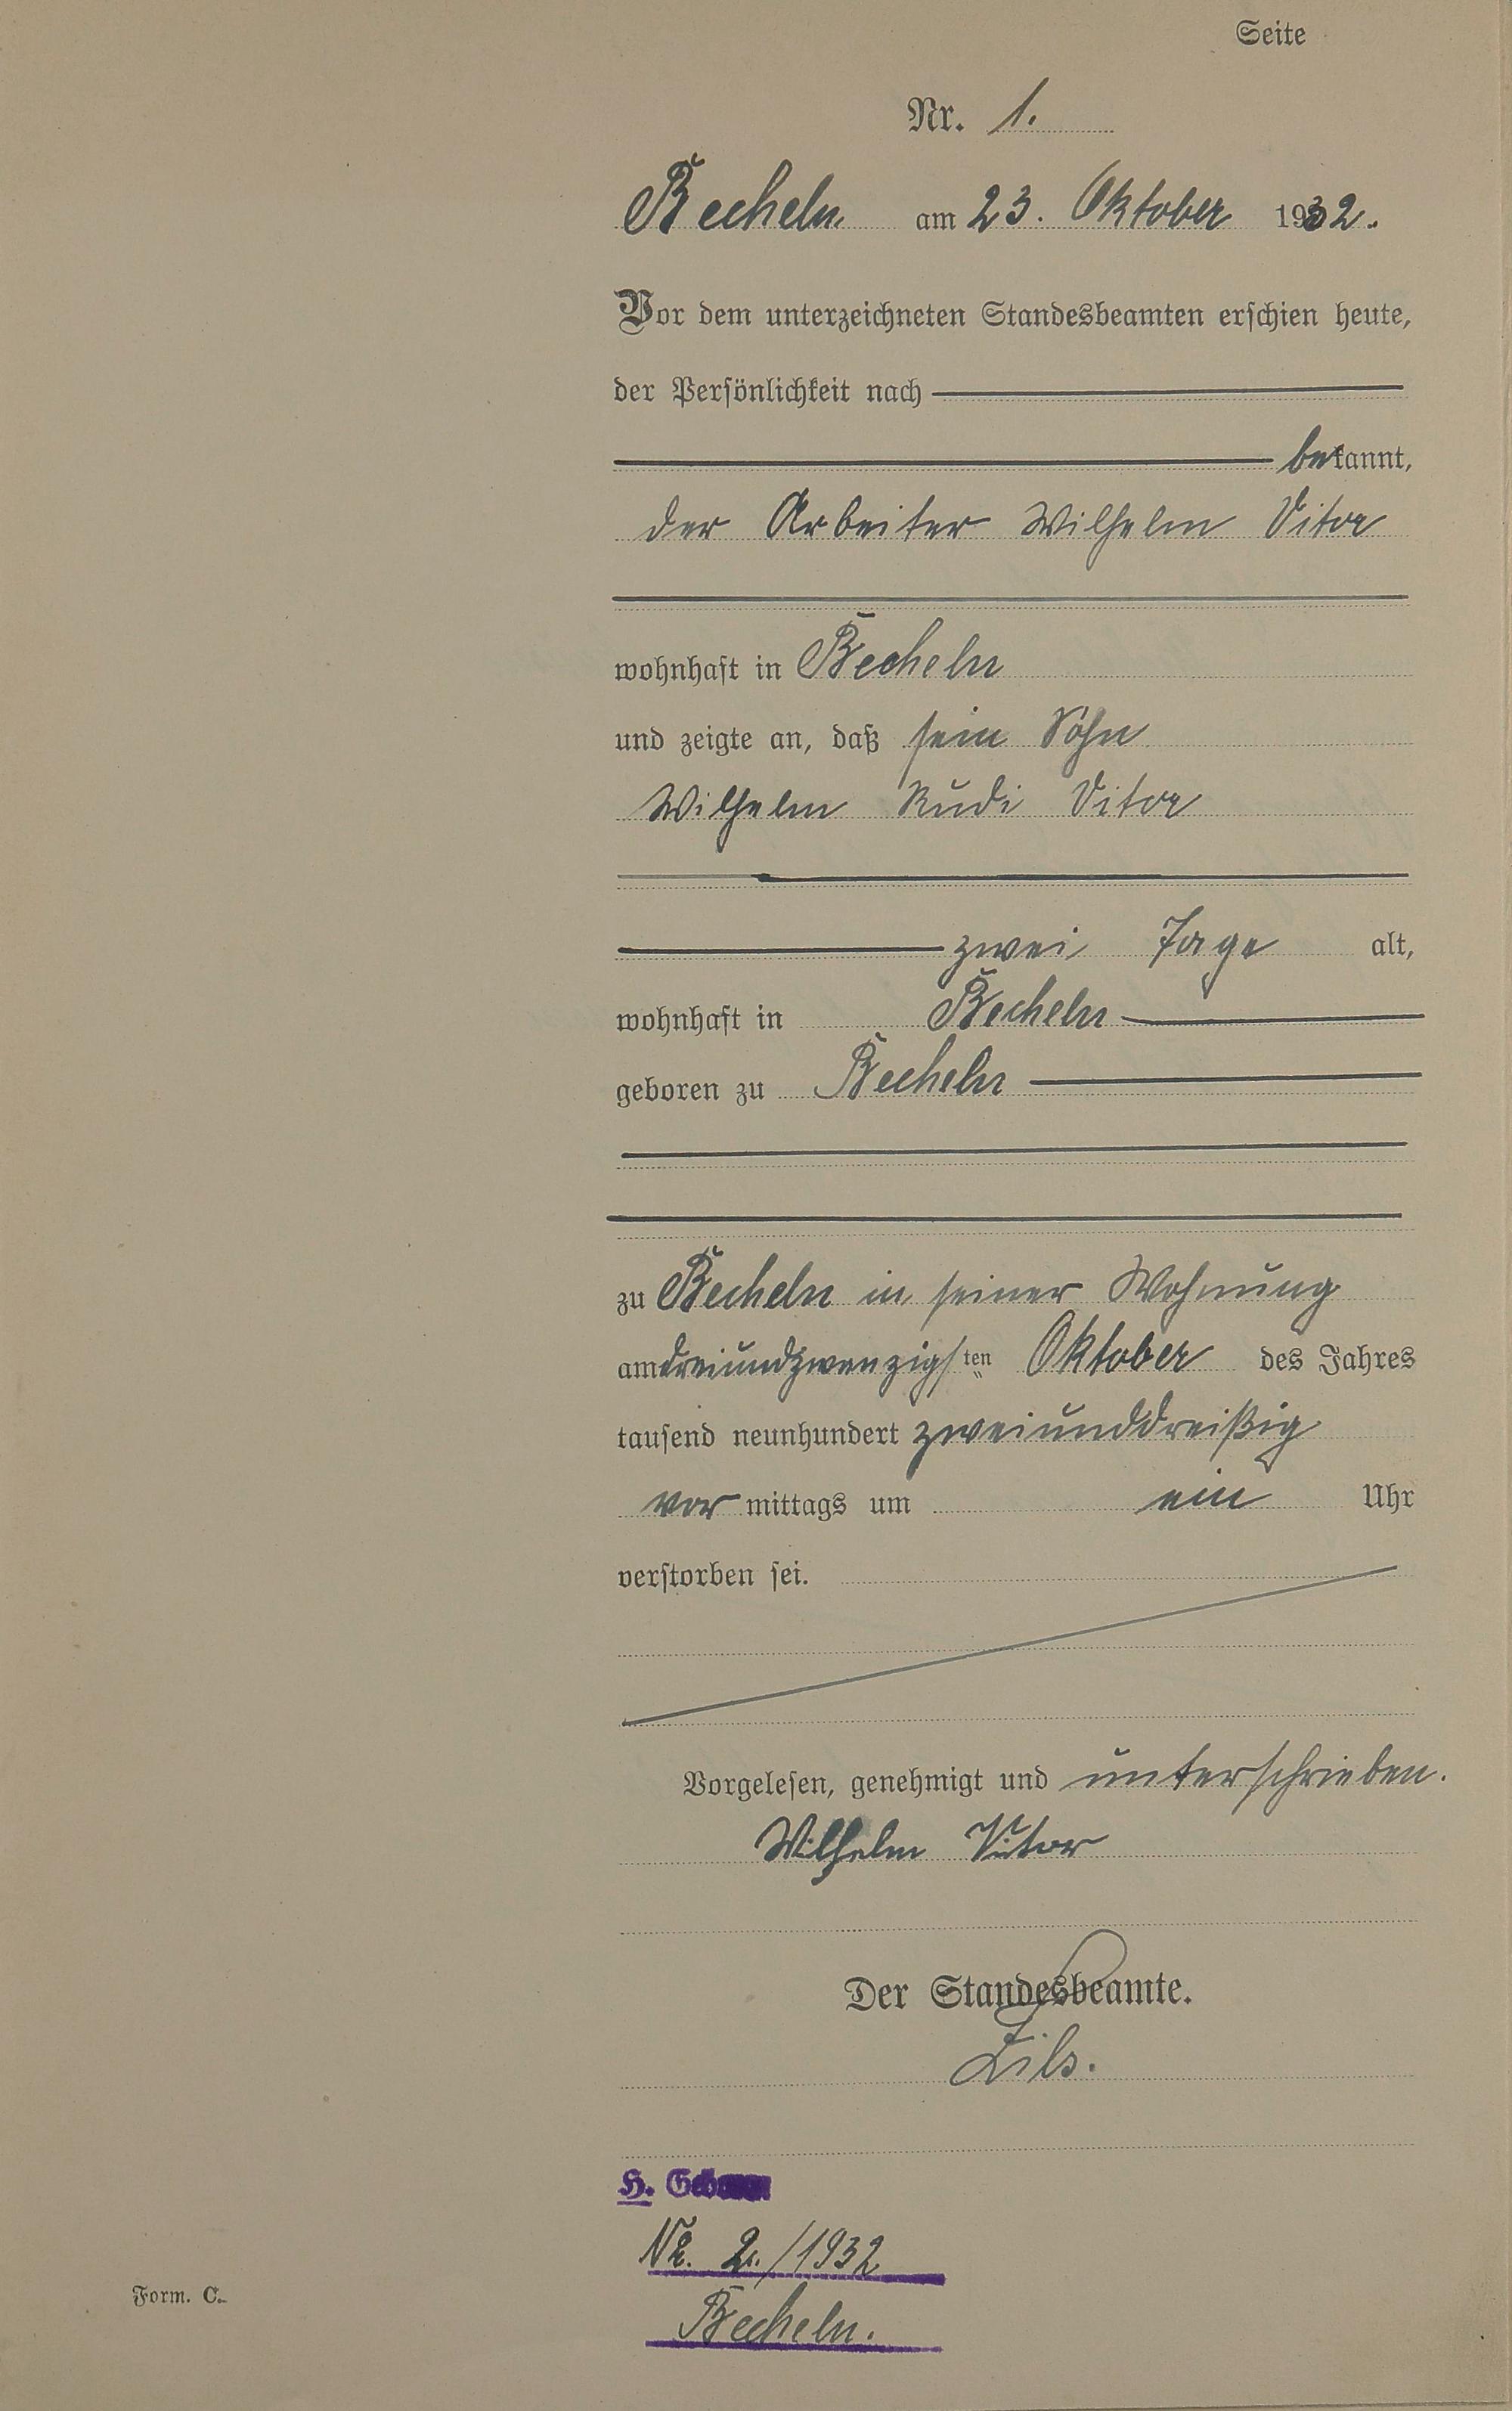 Seite
Nr. 1.
Becheln am 23. Oktober 1932.
Vor dem unterzeichneten Standesbeamten erschien heute,
der Persönlichkeit nach
bekannt,
der Arbeiter Wilhelm Vitor
wohnhaft in Becheln
und zeigte an, daß sein Sohn
Wilhelm Rudi Vitor
zwei Tage alt,
wohnhaft in Becheln
geboren zu Becheln
zu Becheln in seiner Wohnung
am dreiundzwanzigsten Oktober des Jahres
tausend neunhundert zweiunddreißig
vor mittags um ein Uhr
verstorben sei.
Vorgelesen, genehmigt und unterschrieben.
Wilhelm Vitor
Der Standesbeamte.
Zils.
H.
Nr. 2./1932
Form. C.
Becheln.